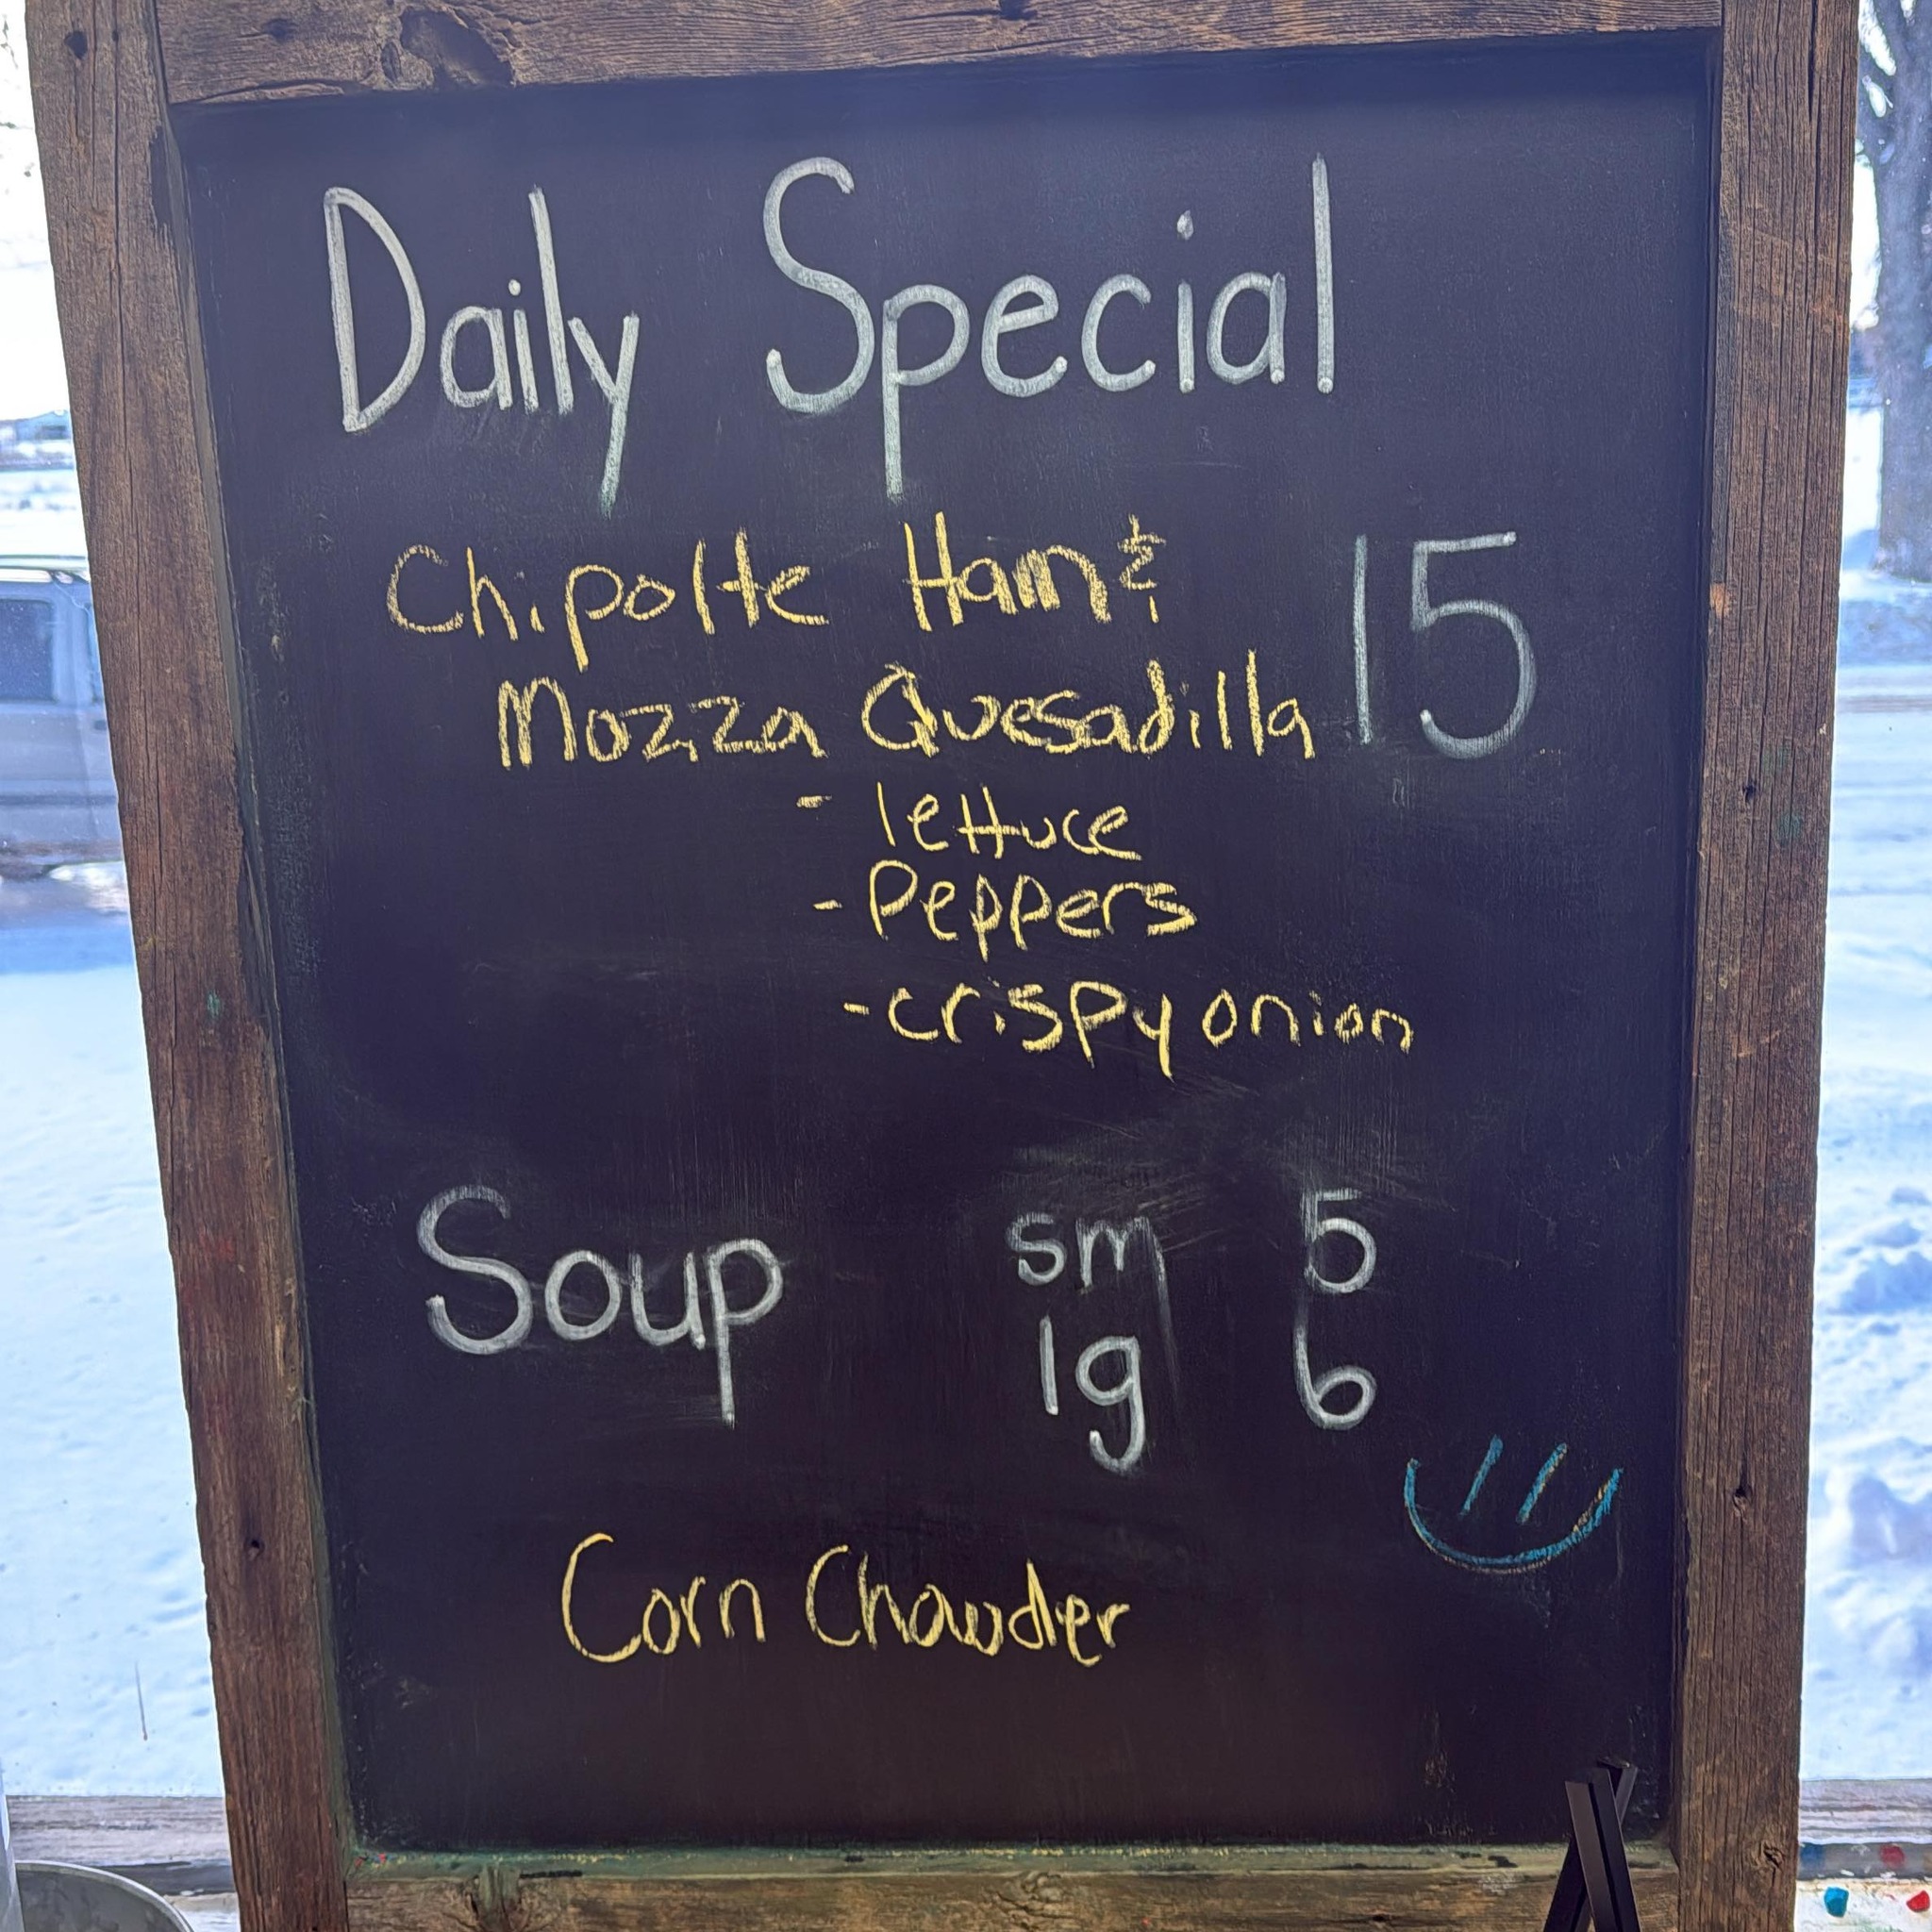 Daily Special
Chipolte Ham & 15
Mozza Quesadilla
- lettuce
- Peppers
- crispy onion
Soup sm 5
lg 6
Corn Chowder